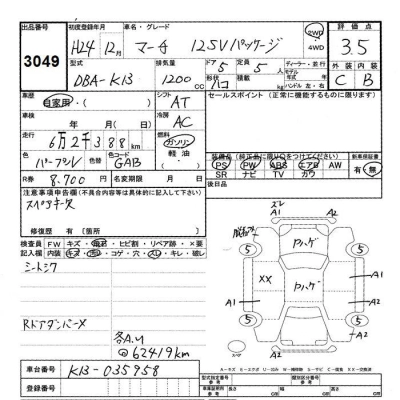 出品番号 初度登録年月 車名・グレード 2WD 4WD 評価点
3049 H24年 12月 マーチ 125Vパッケージ 3.5
型式 排気量 ドア 定員 ディーラー・並行 外装 内装
DBA-K13 1200cc 5 5人 モデル年式 年
形状 ハコ ハンドル 左・右 C B
車歴 シフト セールスポイント(正常に機能するものに限ります)
自家用・( ) AT
車検 冷房
年 月(日) AC
走行 燃料
6万2千388km ガソリン
色 色替 色コード 軽油
パープル GAB ( )
装備品(純正品に限り○をつけて下さい) 新車時保証書
PS PW ABS エアB AW 有・無
SR ナビ TV カワ
R券 8,700円 名変期限 月 日
後日品
注意事項申告欄(不具合内容等は具体的に記入して下さい)
スペアキーナス
修復歴 有 [箇所 ]
検査員 FW キズ・飛石・ヒビ割・リペア跡・×要
記入欄 内装 キズ・汚・コゲ・穴・スレ・キレ・破し
シートシワ
RドアダンパーX
各A.U
メ62419km
ズレ
A1 A2
Pハゲ
5 5
XX A1
A1 Pハゲ A2
5 5
A2
スペア
車台番号 K13-035958
登録番号
型式指定番号 類別区分番号
参考 長さ cm 幅 cm 高さ cm